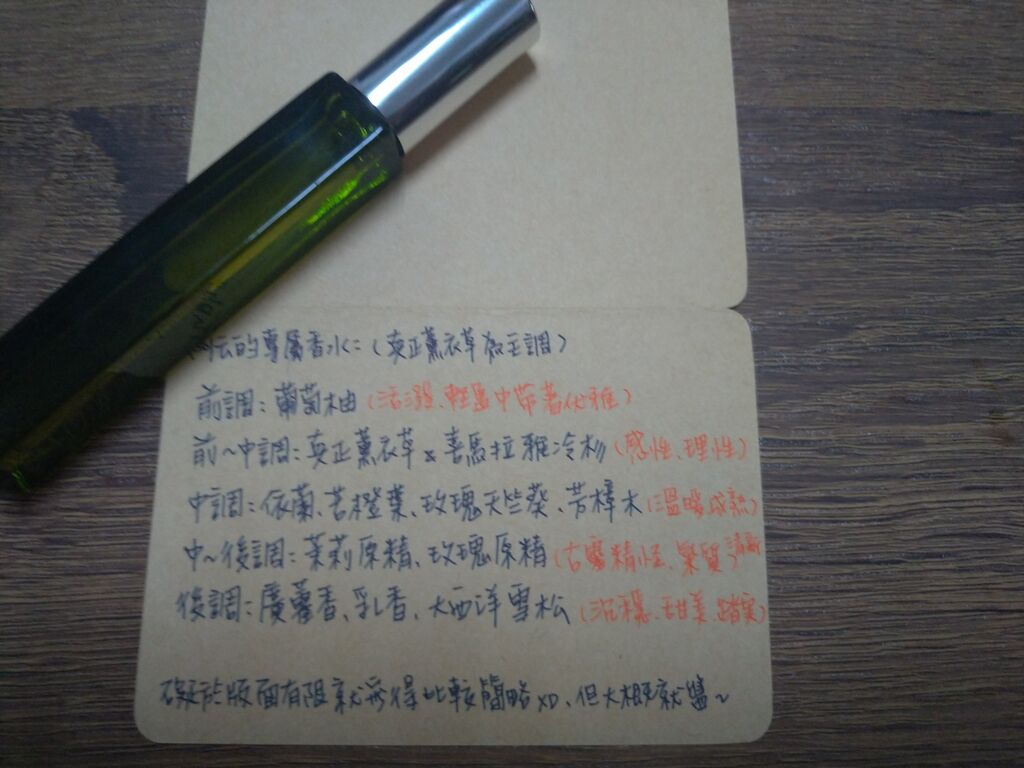 的專屬香水:(真正薰衣草為主調)
前調:葡萄柚(活潑、輕盈中帶著优雅)
前~中調:真正薰衣草&喜馬拉雅冷杉(感性、理性)
中調:依蘭、苦橙葉、玫瑰天竺葵、芳樟木(溫暖成熟)
中~後調:茉莉原精、玫瑰原精(古靈精怪、氣質清新
後調:廣藿香、乳香、大西洋雪松(沉穩、甜美、踏實)
礙於版面有限就寫得比較簡略XD、但大概就這~